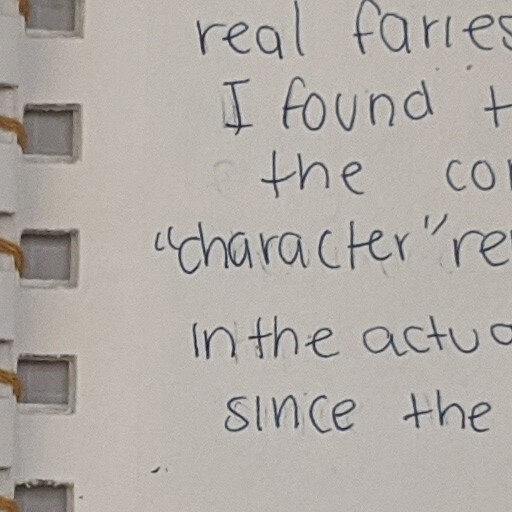 real faries
I found t
the cor
"character" re
in the actua
since the